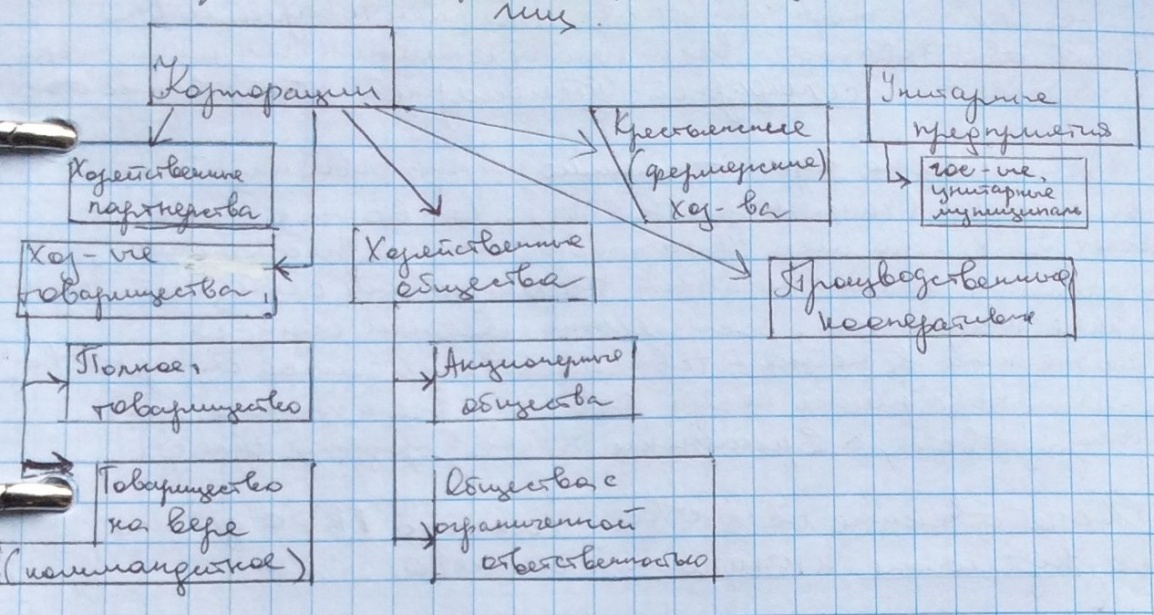 лиц.
Корпорации
Унитарные
предприятия
гос-ые,
унитарные
муниципаль
Крестьянские
(фермерские)
хоз-ва
Хозяйственные
партнерства
Хоз-ые
товарищества
Хозяйственные
общества
Производственные
кооперативы
Полное
товарищество
Акционерные
общества
Товарищество
на вере
(коммандитное)
Общества с
ограниченной
ответственностью